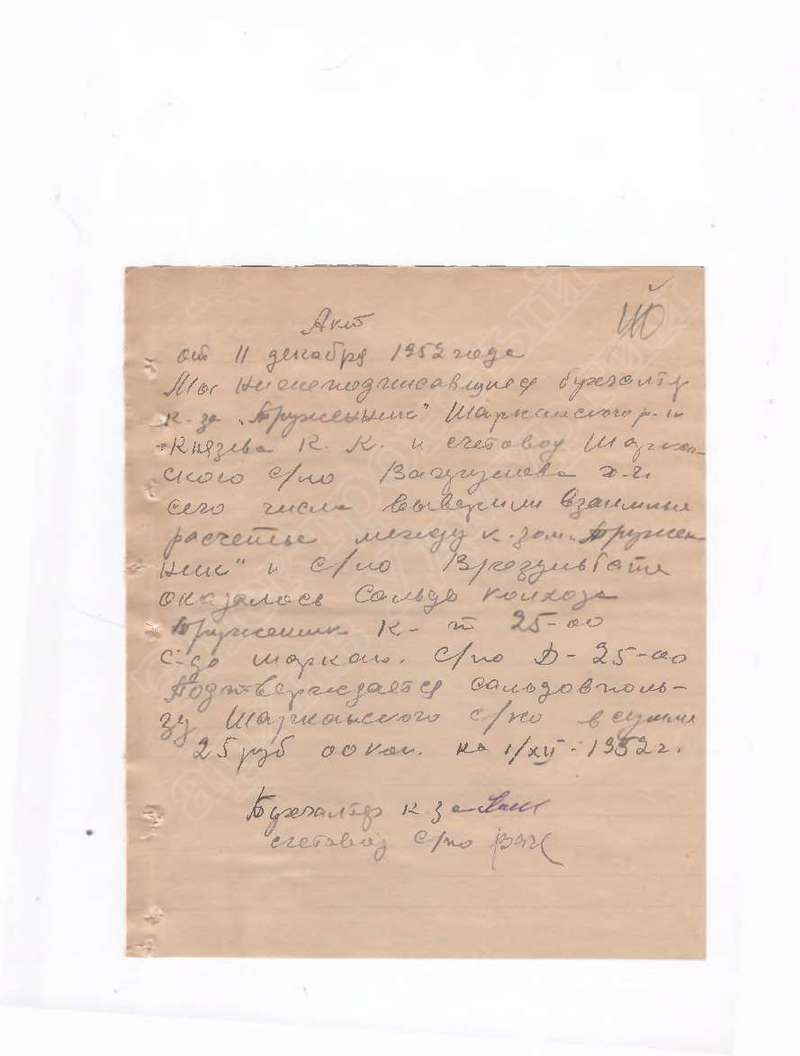 Акт
от 11 декабря 1952 года
Мы нижеподписавшиеся бухгалтер
к-за „Труженник" Шарканского р-на
Князева К. К. и счетовод Шаркан-
ского с/по
сего числа выверили взаимные
расчеты между к-зом „Тружен-
ник" и с/по В результате
оказалось Сальдо колхоза
Труженник К-т 25-00
с-до Шаркан. с/по Д-25-00
Подтверждается сальдо в поль-
зу Шарканского с/по в сумме
25 руб 00 коп. на 1/XII-1952 г.
Бухгалтер к-за
счетовод с/по